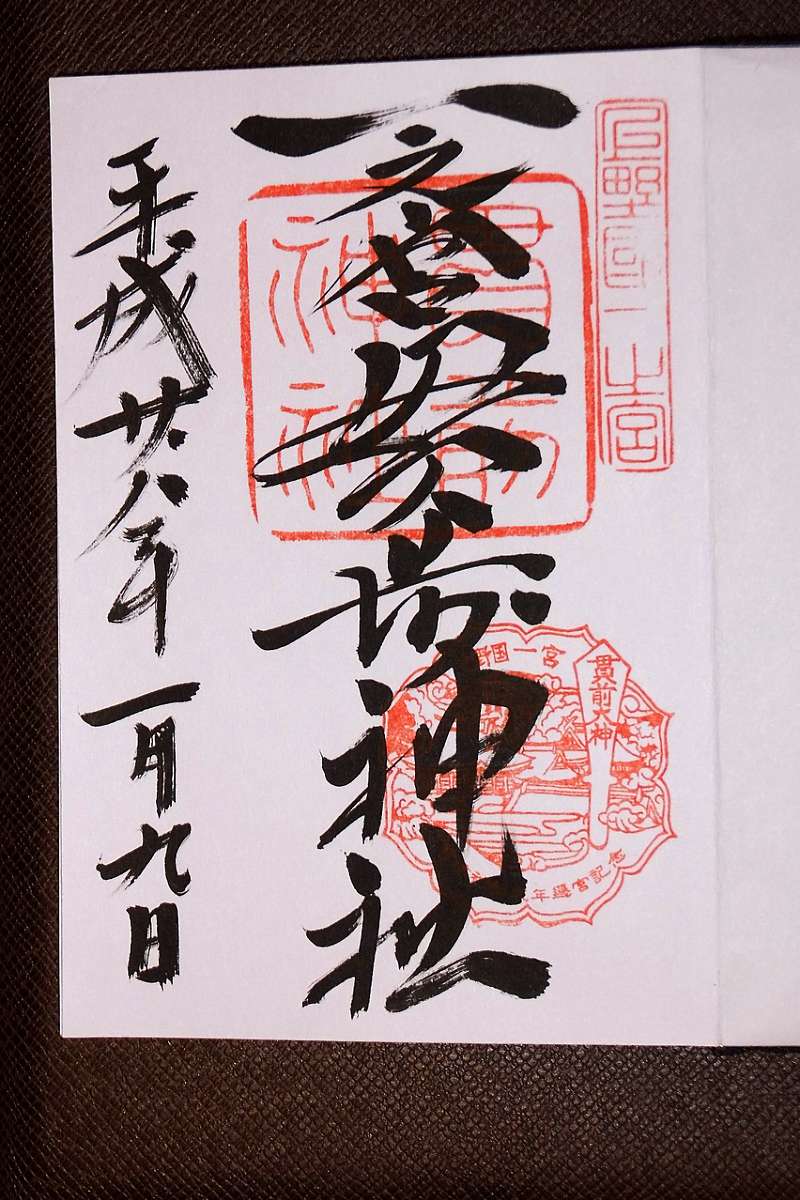 上野國一之宮
一之宮貫前神社
貫前神社
宮一国野
貫前大神
念記宮遷年
平成廿八年一月九日